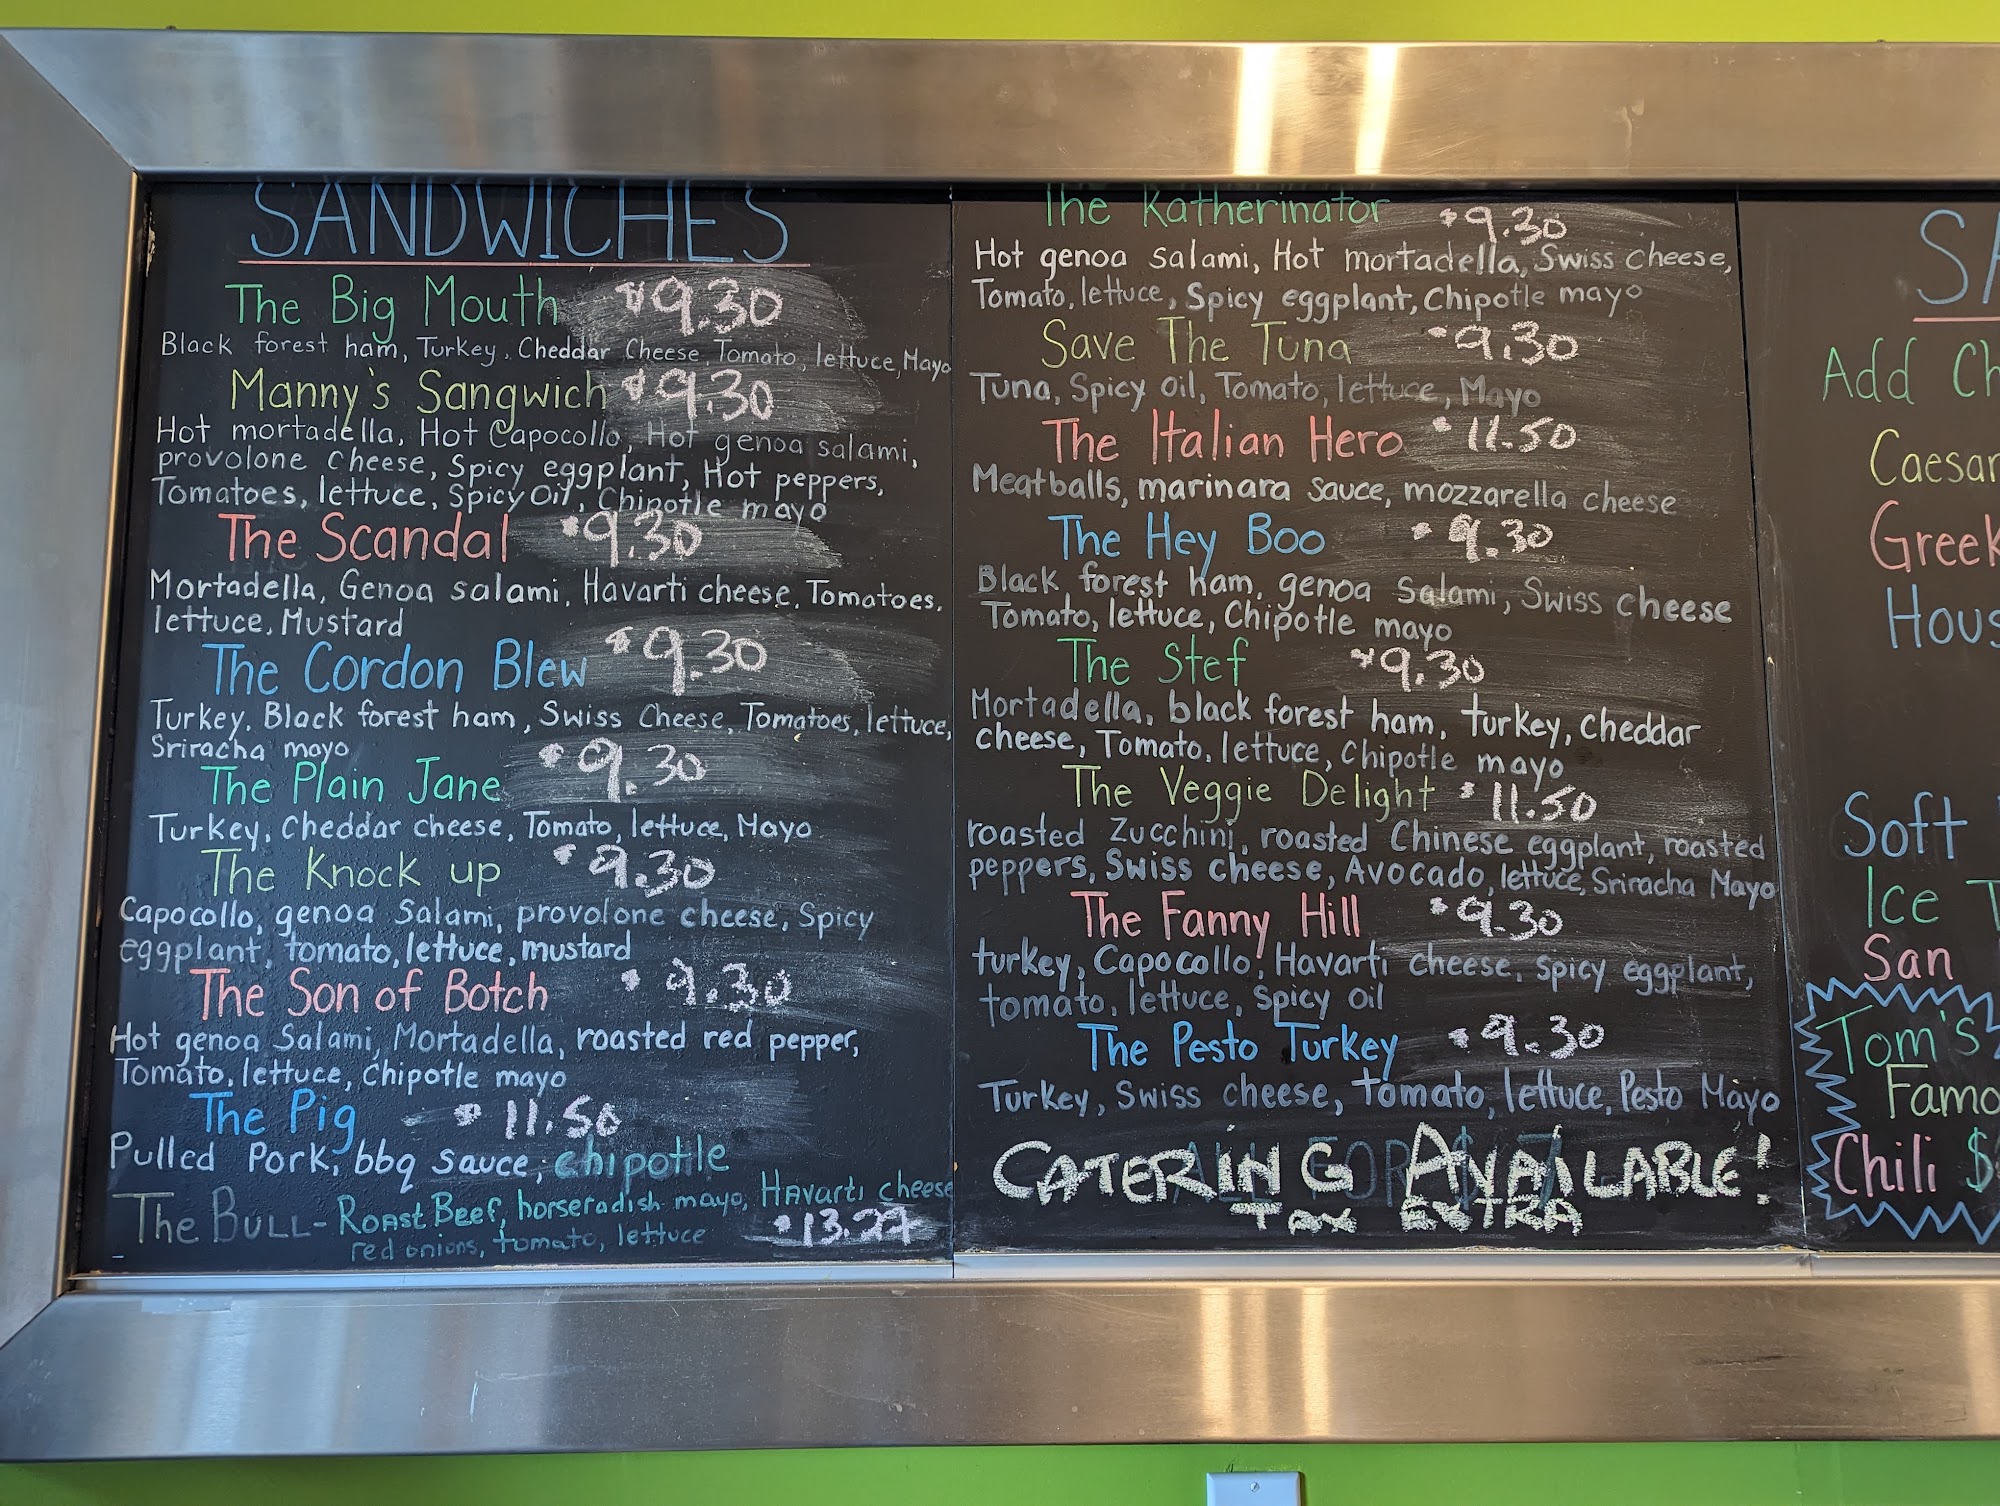 SANDWICHES
The Big Mouth $9.30
Black forest ham, Turkey, Cheddar Cheese Tomato, lettuce, Mayo
Manny's Sangwich $9.30
Hot mortadella, Hot Capocollo, Hot genoa salami,
provolone cheese, Spicy eggplant, Hot peppers,
Tomatoes, lettuce, Spicy Oil, Chipotle mayo
The Scandal $9.30
Mortadella, Genoa salami, Havarti cheese, Tomatoes,
lettuce, Mustard
The Cordon Blew $9.30
Turkey, Black forest ham, Swiss Cheese, Tomatoes, lettuce,
Sriracha mayo
The Plain Jane $9.30
Turkey, Cheddar cheese, Tomato, lettuce, Mayo
The Knock up $9.30
Capocollo, genoa Salami, provolone cheese, Spicy
eggplant, tomato, lettuce, mustard
The Son of Botch $9.30
Hot genoa Salami, Mortadella, roasted red pepper,
Tomato, lettuce, Chipotle mayo
The Pig $11.50
Pulled Pork, bbq sauce, chipotle
The BULL - Roast Beef, horseradish mayo, Havarti cheese
red onions, tomato, lettuce $13.27
The Katherinator $9.30
Hot genoa salami, Hot mortadella, Swiss cheese,
Tomato, lettuce, Spicy eggplant, Chipotle mayo
Save The Tuna $9.30
Tuna, Spicy Oil, Tomato, lettuce, Mayo
The Italian Hero $11.50
Meatballs, marinara sauce, mozzarella cheese
The Hey Boo $9.30
Black forest ham, genoa Salami, Swiss cheese
Tomato, lettuce, Chipotle mayo
The Stef $9.30
Mortadella, black forest ham, turkey, cheddar
cheese, Tomato, lettuce, Chipotle mayo
The Veggie Delight $11.50
roasted Zucchini, roasted Chinese eggplant, roasted
peppers, Swiss cheese, Avocado, lettuce, Sriracha Mayo
The Fanny Hill $9.30
turkey, Capocollo, Havarti cheese, Spicy eggplant,
tomato, lettuce, Spicy Oil
The Pesto Turkey $9.30
Turkey, Swiss cheese, tomato, lettuce, Pesto Mayo
CATERING AVAILABLE!
TAX EXTRA
SA
Add Ch
Caesar
Greek
Hous
Soft
Ice T
San
Tom's
Famo
Chili $